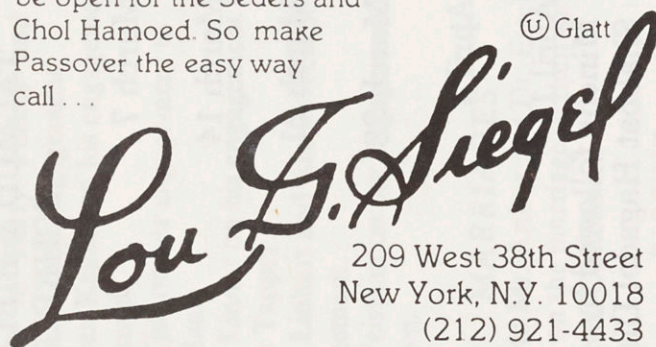 be open for the Seders and
Chol Hamoed. So make
Passover the easy way
call . . .
Ⓤ Glatt
Lou G. Siegel
209 West 38th Street
New York, N.Y. 10018
(212) 921-4433